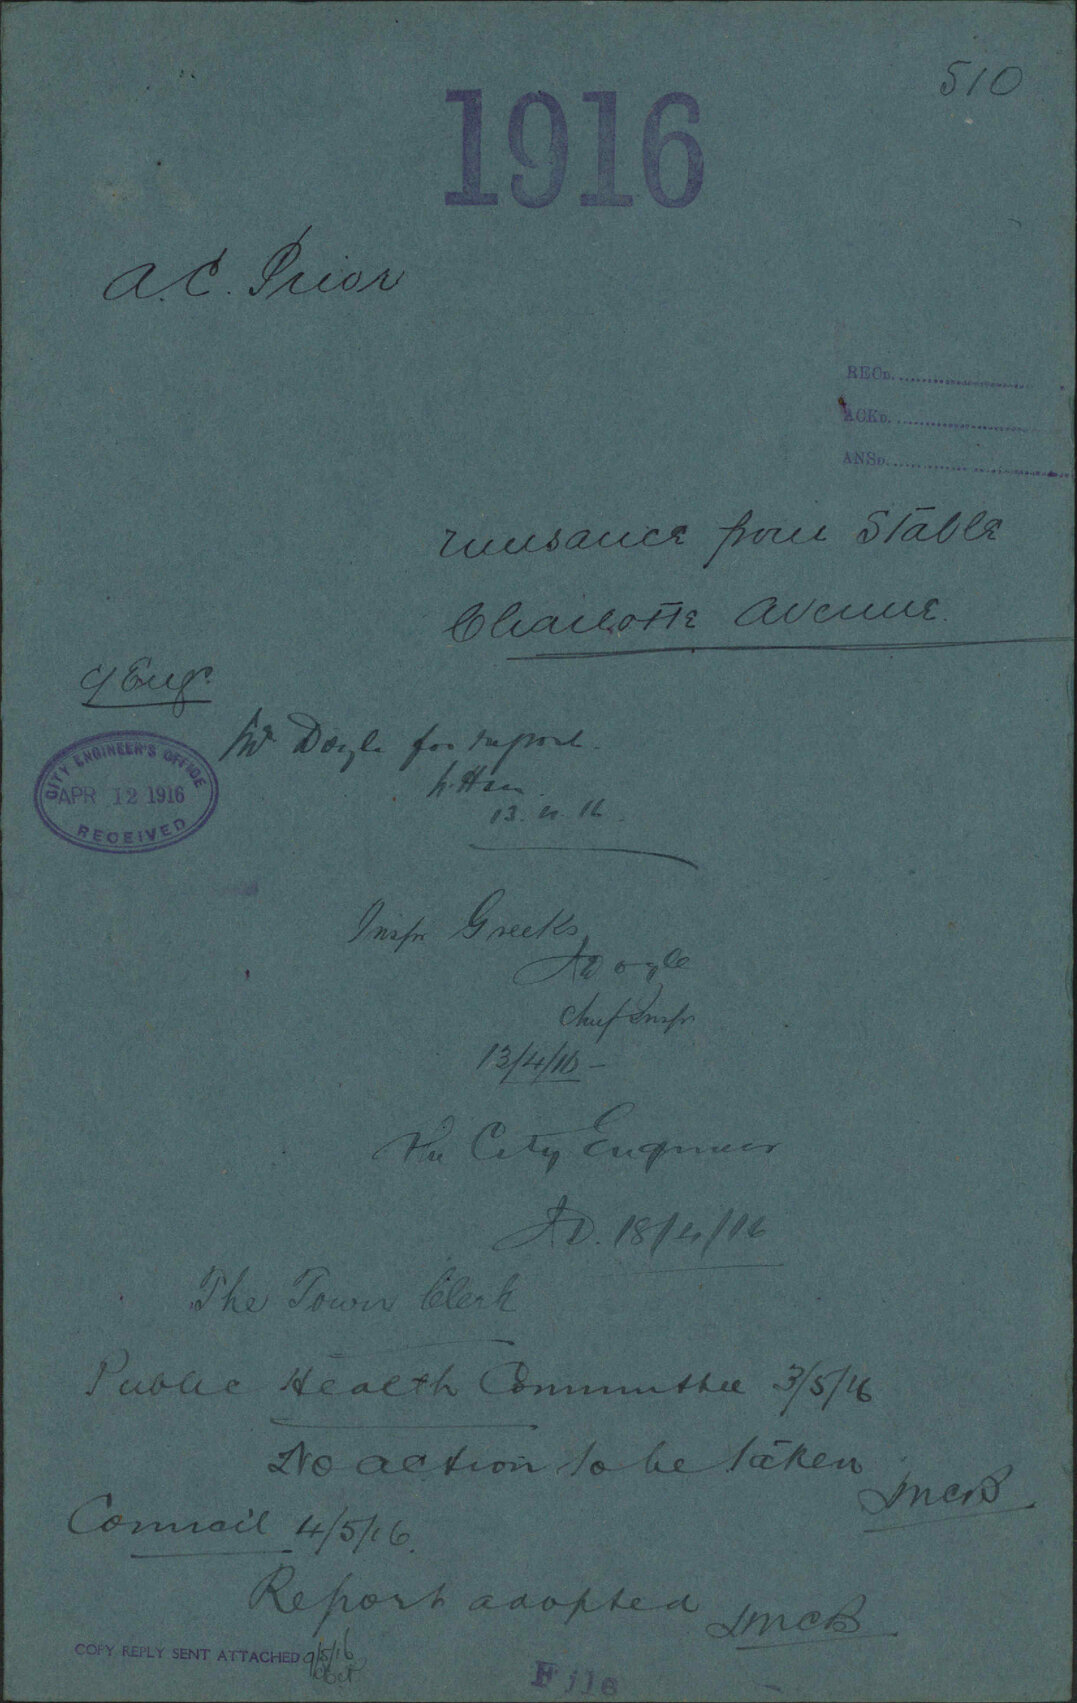 510
1916
A. C. Prior
RECD.
ACKD.
ANSD.
nuisance from Stable
Charlotte Avenue.
Cy Engr.
CITY ENGINEER'S OFFICE
APR 12 1916
RECEIVED
Mr Doyle for report.
13. 4. 16.
Inspr Greeks
J Doyle
Chief Inspr
13/4/16 –
The City Engineer
J D. 18/4/16
The Town Clerk
Public Health Committee 3/5/16
No action to be taken
JMcB
Council 4/5/16.
Report adopted
JMcB
COPY REPLY SENT ATTACHED 9/5/16
File